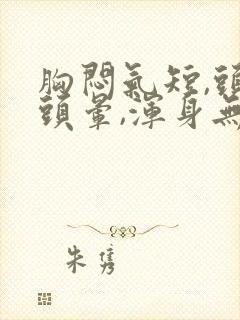 胸悶氣短,頭
頭暈,渾身無
朱雋